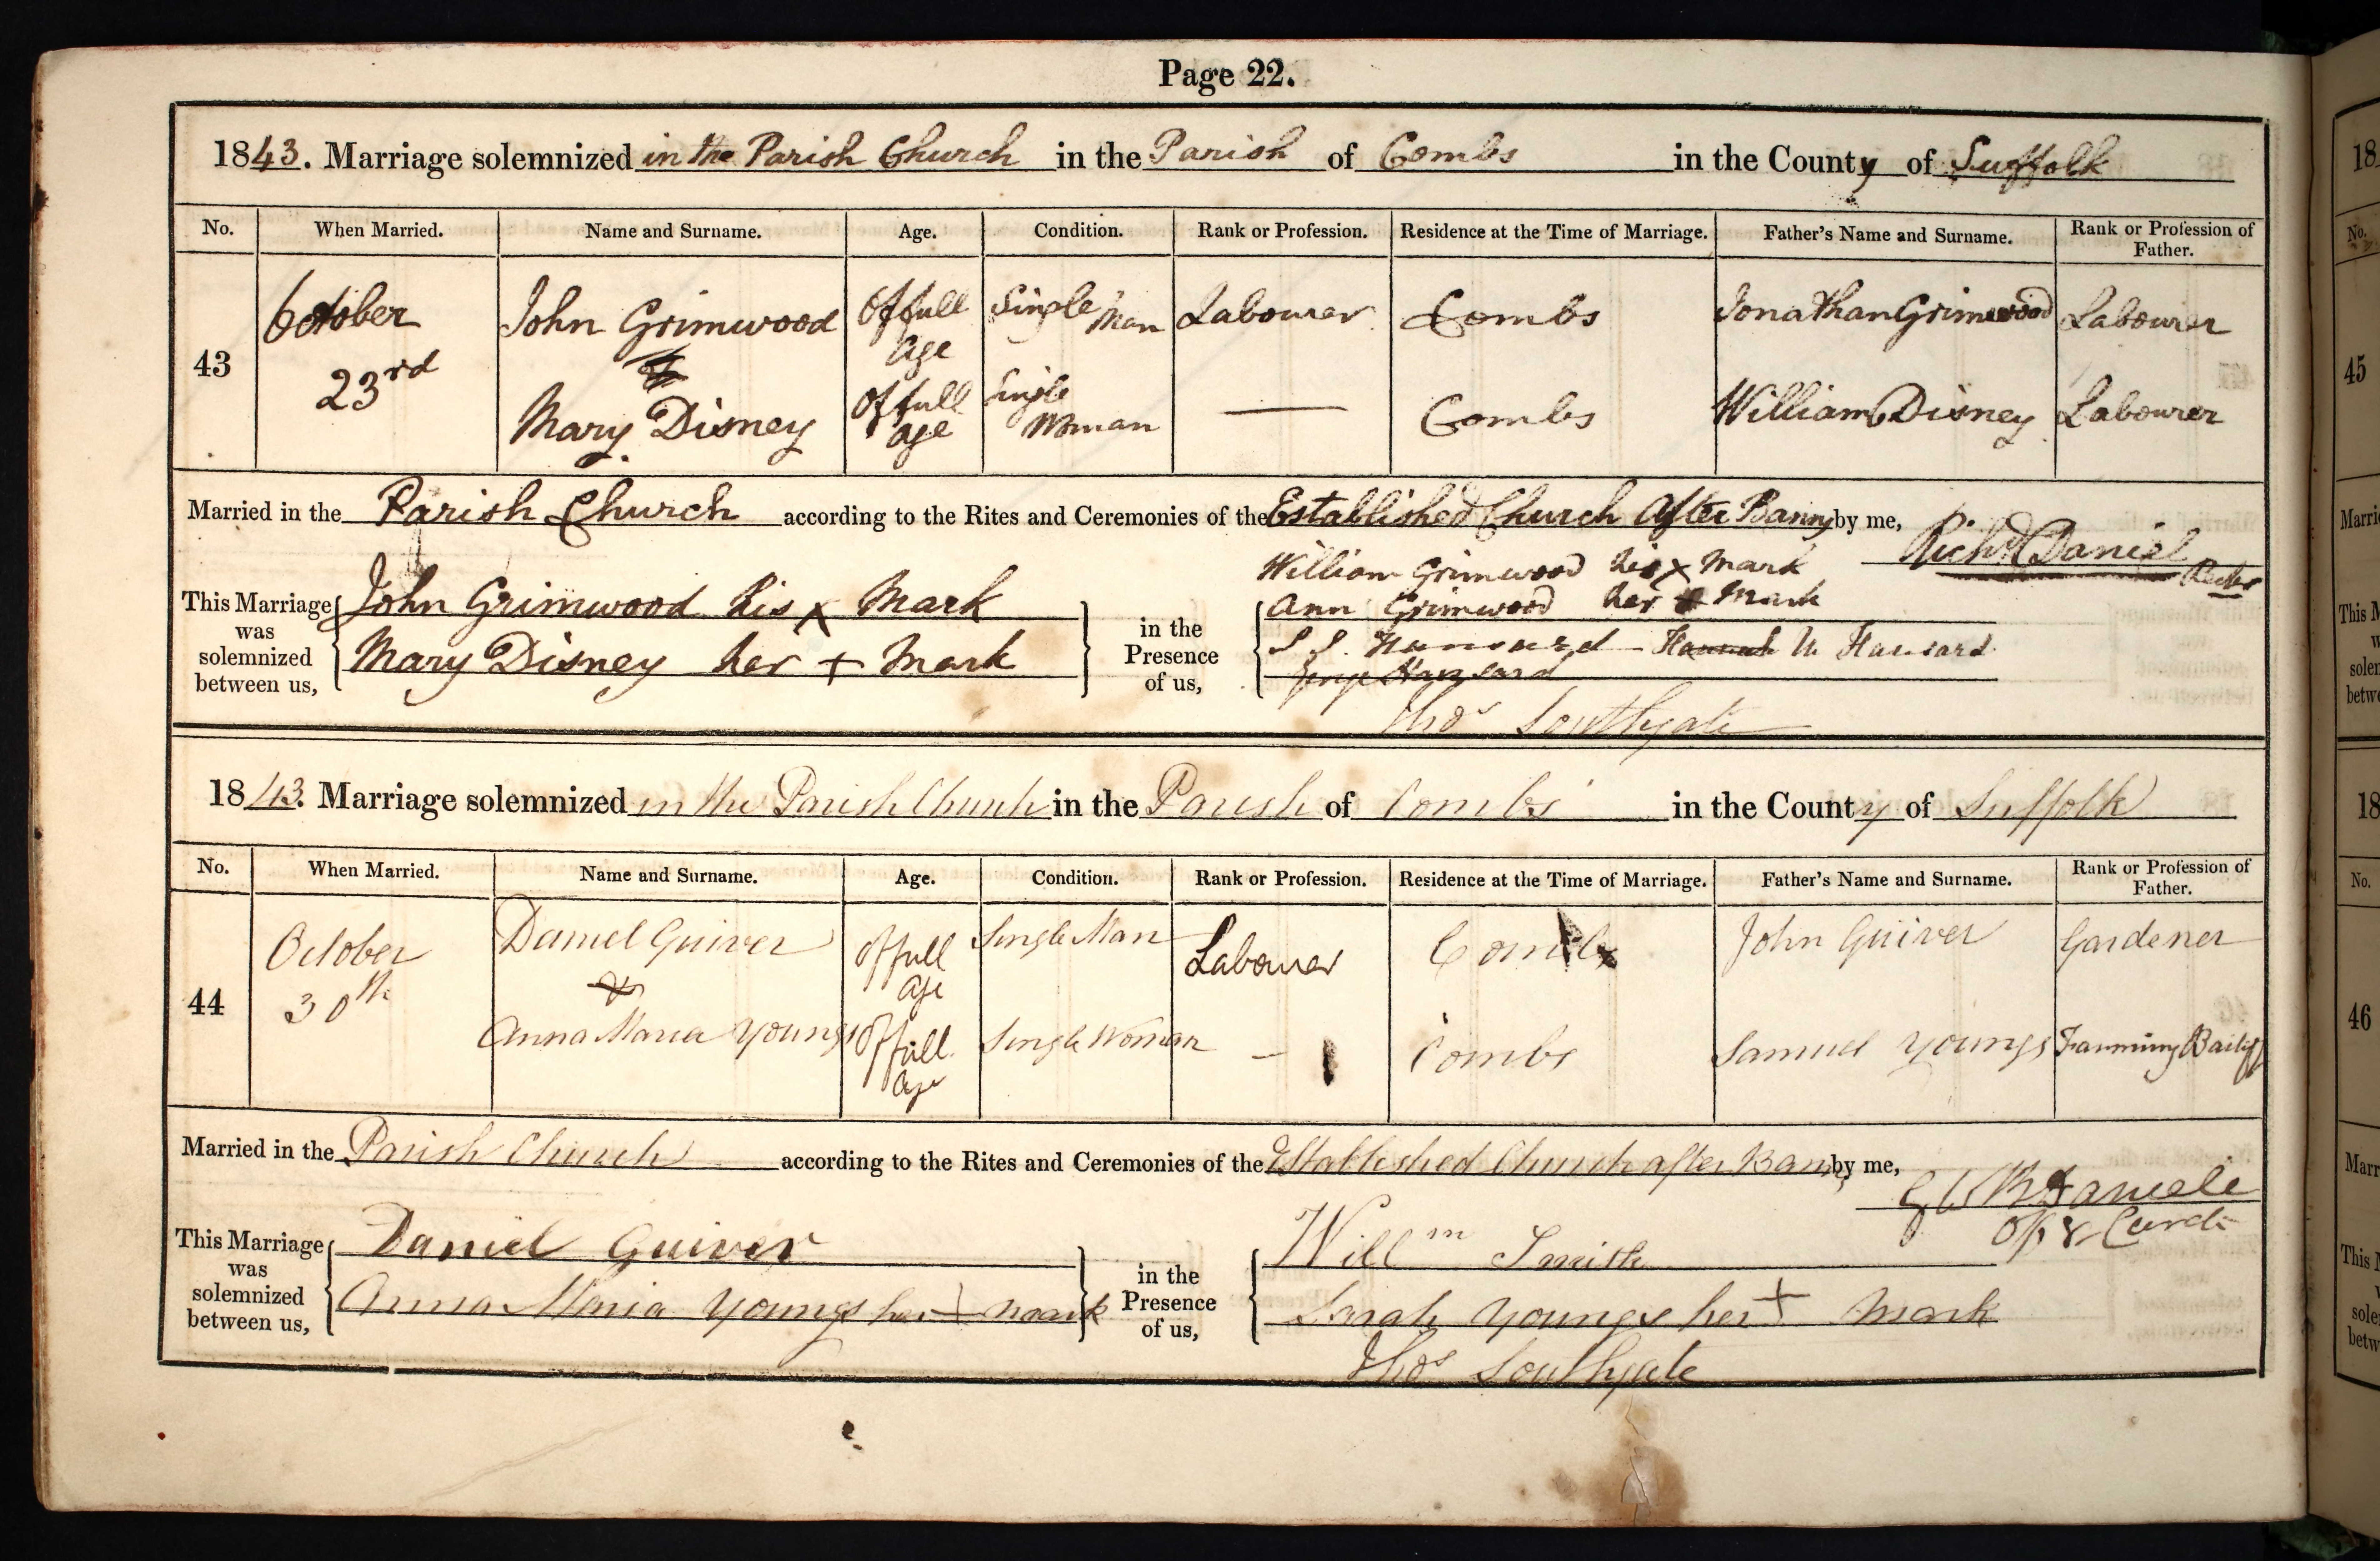 Page 22.
1843. Marriage solemnized in the Parish Church in the Parish of Combs in the County of Suffolk
No. When Married. Name and Surname. Age. Condition. Rank or Profession. Residence at the Time of Marriage. Father's Name and Surname. Rank or Profession of Father.
43 October 23rd John Grimwood Of full age Single Man Labourer Combs Jonathan Grimwood Labourer
&
Mary Disney Of full age Single Woman — Combs William Disney Labourer
Married in the Parish Church according to the Rites and Ceremonies of the Established Church After Banns by me, Richd Daniel Rector
This Marriage was solemnized between us, John Grimwood his x Mark
Mary Disney her + Mark
in the Presence of us, William Grimwood his x Mark
Ann Grimwood her x Mark
S S. Hansard - Hannah M Hansard
George Hansard
Thos Southgate
1843. Marriage solemnized in the Parish Church in the Parish of Combs in the County of Suffolk
No. When Married. Name and Surname. Age. Condition. Rank or Profession. Residence at the Time of Marriage. Father's Name and Surname. Rank or Profession of Father.
44 October 30th Daniel Quiver Of full age Single Man Labourer Combs John Quiver Gardener
&
Anna Maria Youngs Of full age Single Woman — Combs Samuel Youngs Farming Bailiff
Married in the Parish Church according to the Rites and Ceremonies of the Established Church after Banns by me,
This Marriage was solemnized between us, Daniel Quiver
Anna Maria Youngs her + mark
in the Presence of us, Willm Smith
Sarah Youngs her + mark
Thos Southgate
18
No.
45
46